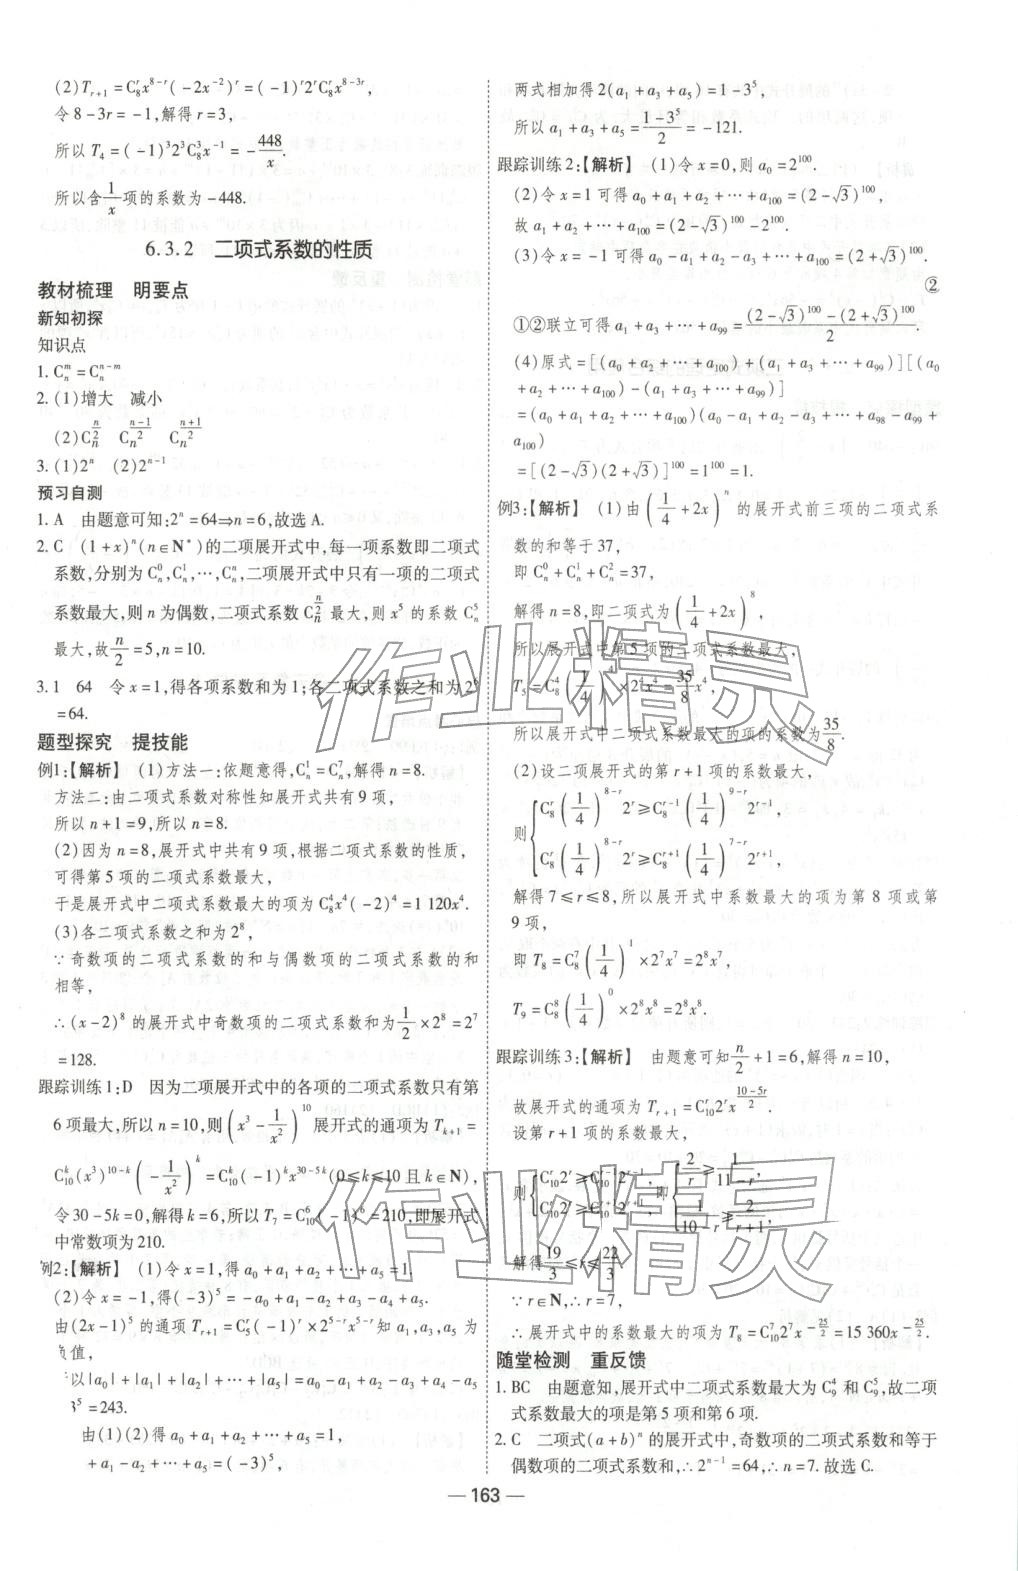 (2)Tᵣ₊₁=C₈ʳx⁸⁻ʳ(-2x⁻²)ʳ=(-1)ʳ2ʳC₈ʳx⁸⁻³ʳ,
令8-3r=-1,解得r=3,
所以T₄=(-1)³2³C₈³x⁻¹=-448/x.
所以含1/x项的系数为-448.
6.3.2 二项式系数的性质
教材梳理 明要点
新知初探
知识点
1. Cₙᵐ=Cₙⁿ⁻ᵐ
2. (1)增大 减小
(2)C_n^{n/2} C_n^{(n-1)/2} C_n^{(n+1)/2}
3. (1)2ⁿ (2)2ⁿ⁻¹
预习自测
1. A 由题意可知:2ⁿ=64⇒n=6,故选A.
2. C (1+x)ⁿ(n∈N*)的二项展开式中,每一项系数即二项式
系数,分别为Cₙ⁰,Cₙ¹,…,Cₙⁿ,二项展开式中只有一项的二项式
系数最大,则n为偶数,二项式系数C_n^{n/2}最大,则x⁵的系数Cₙ⁵
最大,故n/2=5,n=10.
3. 1 64 令x=1,得各项系数和为1;各二项式系数之和为2⁶
=64.
题型探究 提技能
例1:【解析】 (1)方法一:依题意得,Cₙ¹=Cₙ⁷,解得n=8.
方法二:由二项式系数对称性知展开式共有9项,
所以n+1=9,所以n=8.
(2)因为n=8,展开式中共有9项,根据二项式系数的性质,
可得第5项的二项式系数最大,
于是展开式中二项式系数最大的项为C₈⁴x⁴(-2)⁴=1 120x⁴.
(3)各二项式系数之和为2⁸,
∵奇数项的二项式系数的和与偶数项的二项式系数的和
相等,
∴(x-2)⁸的展开式中奇数项的二项式系数和为1/2×2⁸=2⁷
=128.
跟踪训练1:D 因为二项展开式中的各项的二项式系数只有第
6项最大,所以n=10,则(x³-1/x²)¹⁰展开式的通项为Tₖ₊₁=
C₁₀ᵏ(x³)¹⁰⁻ᵏ(-1/x²)ᵏ=C₁₀ᵏ(-1)ᵏx³⁰⁻⁵ᵏ(0≤k≤10且k∈N),
令30-5k=0,解得k=6,所以T₇=C₁₀⁶(-1)⁶=210,即展开式
中常数项为210.
例2:【解析】 (1)令x=1,得a₀+a₁+a₂+…+a₅=1.
(2)令x=-1,得(-3)⁵=-a₀+a₁-a₂+a₃-a₄+a₅.
由(2x-1)⁵的通项Tᵣ₊₁=C₅ʳ(-1)ʳ×2⁵⁻ʳx⁵⁻ʳ知a₁,a₃,a₅为
负值,
以|a₀|+|a₁|+|a₂|+…+|a₅|=a₀-a₁+a₂-a₃+a₄-a₅
3⁵=243.
由(1)(2)得a₀+a₁+a₂+…+a₅=1,
+a₁-a₂+…+a₅=(-3)⁵,
两式相加得2(a₁+a₃+a₅)=1-3⁵,
所以a₁+a₃+a₅=(1-3⁵)/2=-121.
跟踪训练2:【解析】 (1)令x=0,则a₀=2¹⁰⁰.
(2)令x=1可得a₀+a₁+a₂+…+a₁₀₀=(2-√3)¹⁰⁰ ①,
故a₁+a₂+…+a₁₀₀=(2-√3)¹⁰⁰-2¹⁰⁰.
(3)令x=-1可得a₀-a₁+a₂-a₃+…+a₁₀₀=(2+√3)¹⁰⁰
②
①②联立可得a₁+a₃+…+a₉₉=((2-√3)¹⁰⁰-(2+√3)¹⁰⁰)/2.
(4)原式=[(a₀+a₂+…+a₁₀₀)+(a₁+a₃+…+a₉₉)][(a₀
+a₂+…+a₁₀₀)-(a₁+a₃+…+a₉₉)]
=(a₀+a₁+a₂+…+a₁₀₀)(a₀-a₁+a₂-a₃+…-a₉₉+
a₁₀₀)
=[(2-√3)(2+√3)]¹⁰⁰=1¹⁰⁰=1.
例3:【解析】 (1)由(1/4+2x)ⁿ的展开式前三项的二项式系
数的和等于37,
即Cₙ⁰+Cₙ¹+Cₙ²=37,
解得n=8,即二项式为(1/4+2x)⁸,
所以展开式中第5项的二项式系数最大,
T₅=C₈⁴(1/4)⁴×2⁴x⁴=35/8x⁴,
所以展开式中二项式系数最大的项的系数为35/8.
(2)设二项展开式的第r+1项的系数最大,
则{C₈ʳ(1/4)⁸⁻ʳ2ʳ≥C₈ʳ⁻¹(1/4)⁹⁻ʳ2ʳ⁻¹,
C₈ʳ(1/4)⁸⁻ʳ2ʳ≥C₈ʳ⁺¹(1/4)⁷⁻ʳ2ʳ⁺¹,
解得7≤r≤8,所以展开式中系数最大的项为第8项或第
9项,
即T₈=C₈⁷(1/4)¹×2⁷x⁷=2⁸x⁷,
T₉=C₈⁸(1/4)⁰×2⁸x⁸=2⁸x⁸.
跟踪训练3:【解析】 由题意可知n/2+1=6,解得n=10,
故展开式的通项为Tᵣ₊₁=C₁₀ʳ2ʳx^{(10-5r)/2}.
设第r+1项的系数最大,
则{C₁₀ʳ2ʳ≥C₁₀ʳ⁻¹2ʳ⁻¹, C₁₀ʳ2ʳ≥C₁₀ʳ⁺¹2ʳ⁺¹, 即{2/r≥1/(11-r), 1/(10-r)≥2/(r+1),
解得19/3≤r≤22/3.
∵r∈N,∴r=7,
∴展开式中的系数最大的项为T₈=C₁₀⁷2⁷x^{-25/2}=15 360x^{-25/2}.
随堂检测 重反馈
1. BC 由题意知,展开式中二项式系数最大为C₉⁴和C₉⁵,故二项
式系数最大的项是第5项和第6项.
2. C 二项式(a+b)ⁿ的展开式中,奇数项的二项式系数和等于
偶数项的二项式系数和,∴2ⁿ⁻¹=64,∴n=7.故选C.
— 163 —
作业精灵
作业精灵